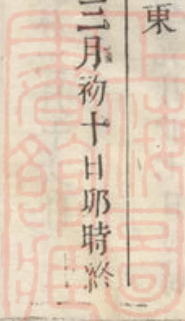 東
三月初十日卯時終